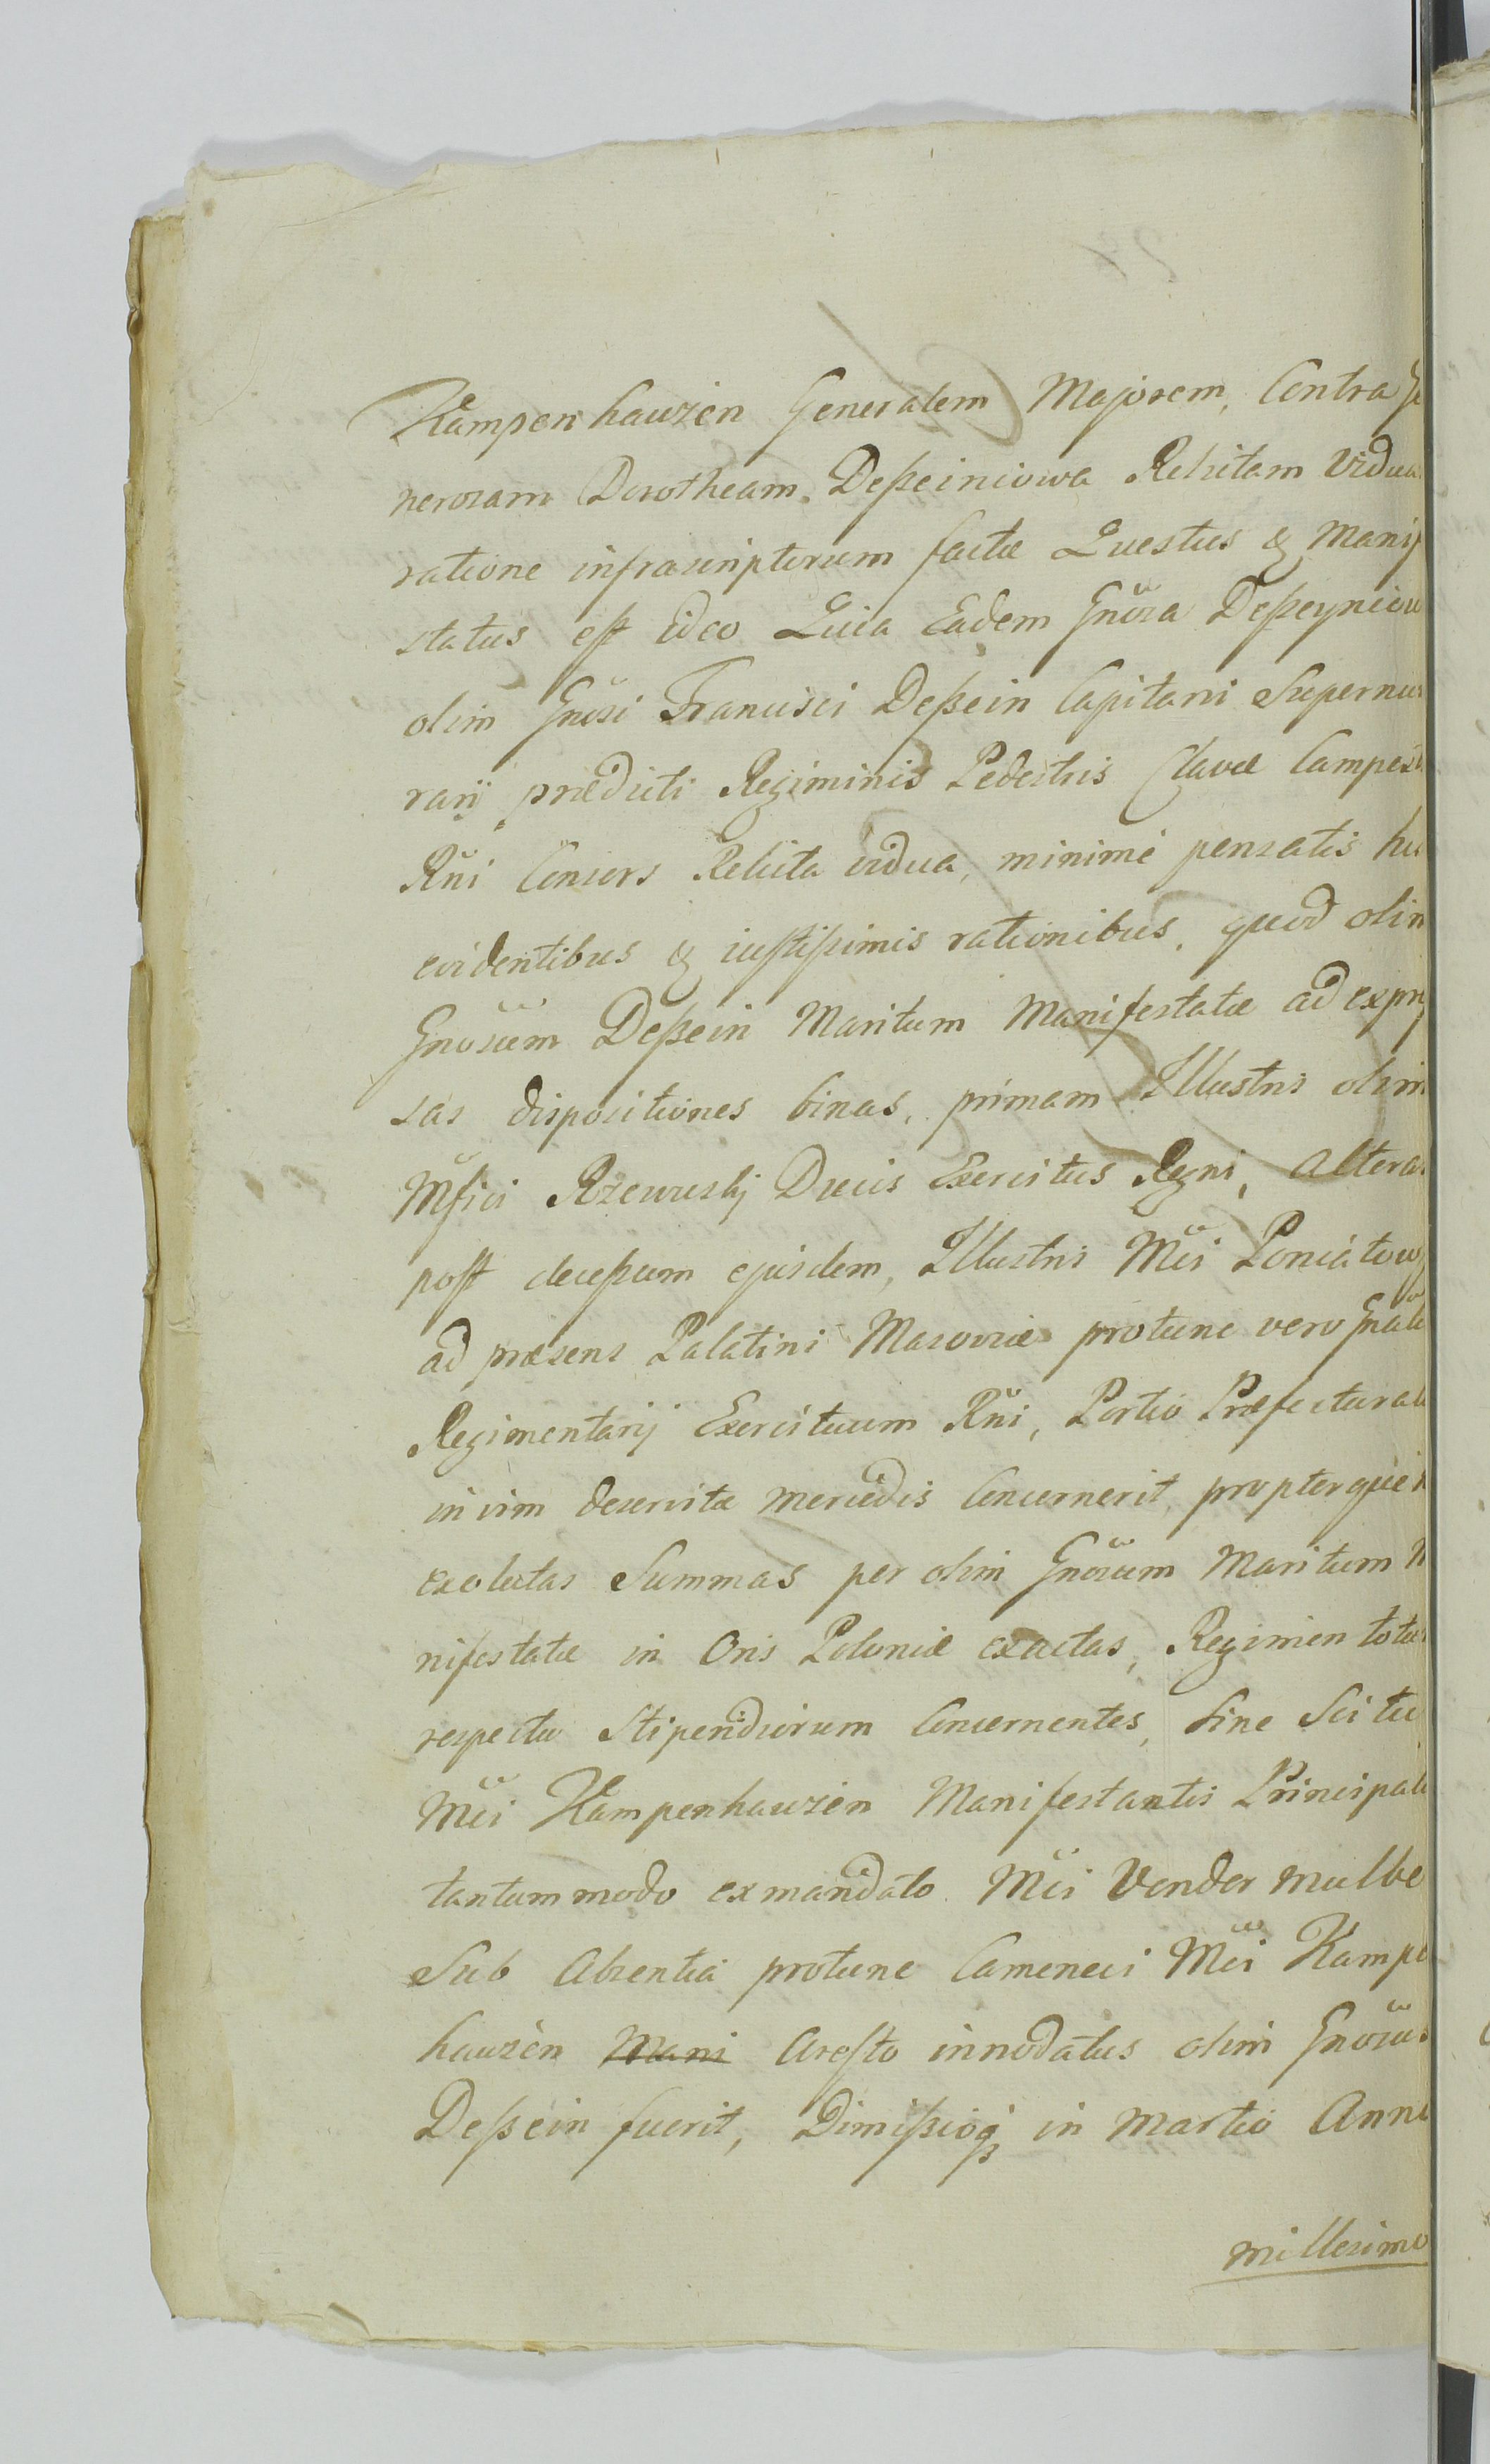 Kampenhauzen Generalem Majorem, Contra Ge
nerosam Dorotheam Deßeiniowa Relictam Vidua
ratione infrascriptorum factæ Questus & Manif
status est ideo Quia Eadem Gnõsa Deßeyniow
olim Gnõsi Francisci Deßein Capitani Supernu
rarij prædicti Regiminis Pedestris Clavæ Campest
Rñi Consors Relicta vidua, minimé pensatis hu
evidentibus & iustißimis rationibus, quod olim
Gnõsum Deßein Maritum Manifestatæ ad expre
sas dispositiones binas, primam Illustris olim
Mfici Rzewuskj Ducis Exercitus Regni, altera
post deceßum ejusdem, Illustris Mci Poniatow
ad præsens Palatini Masoviæ protunc vero Gnãl
Regimentarij Exercituum Rñi, Portio Præfectural
in vim deservitæ mercedis Concernerit, propterque
exolutas Summas per olim Gnõsum Maritum M
nifestatæ in Oris Poloniæ exactas, Regimen totu
respectu Stipendiorum Concernentes, Sine Scitu
Mci Kampenhauzen Manifestantis Principal
tantummodo ex mandato Mci Vonder Mulbe
Sub Absentia protunc Cameneci Mci Kampe
hauzen Mani Aresto innodatus olim Gnõsus
Deßein fuerit, Dimißioq in Martio Anni
millesimo